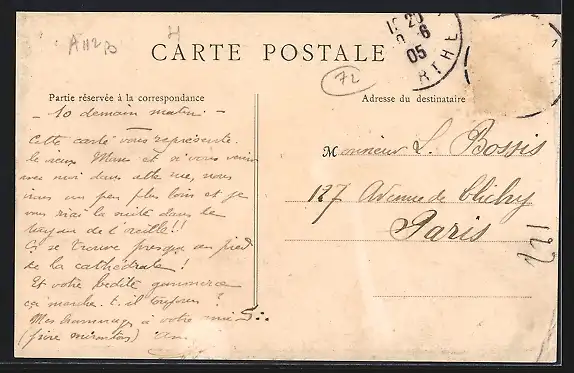 A112 po
CARTE POSTALE
72
20
6
05
RTHE
Partie réservée à la correspondance
Adresse du destinataire
- 10 demain matin -
Cette carte vous représente
le vieux Mans et si vous venez
avec moi dans cette rue, nous
irons un peu plus loin et je
vous dirai la suite dans le
tuyau de l'oreille !!
Ça se trouve presque au pied
de la cathédrale !
Et votre petite
ça marche-t-il toujours ?
Mes hommages à votre
Monsieur L. Bossis
127 Avenue de Clichy
Paris
221